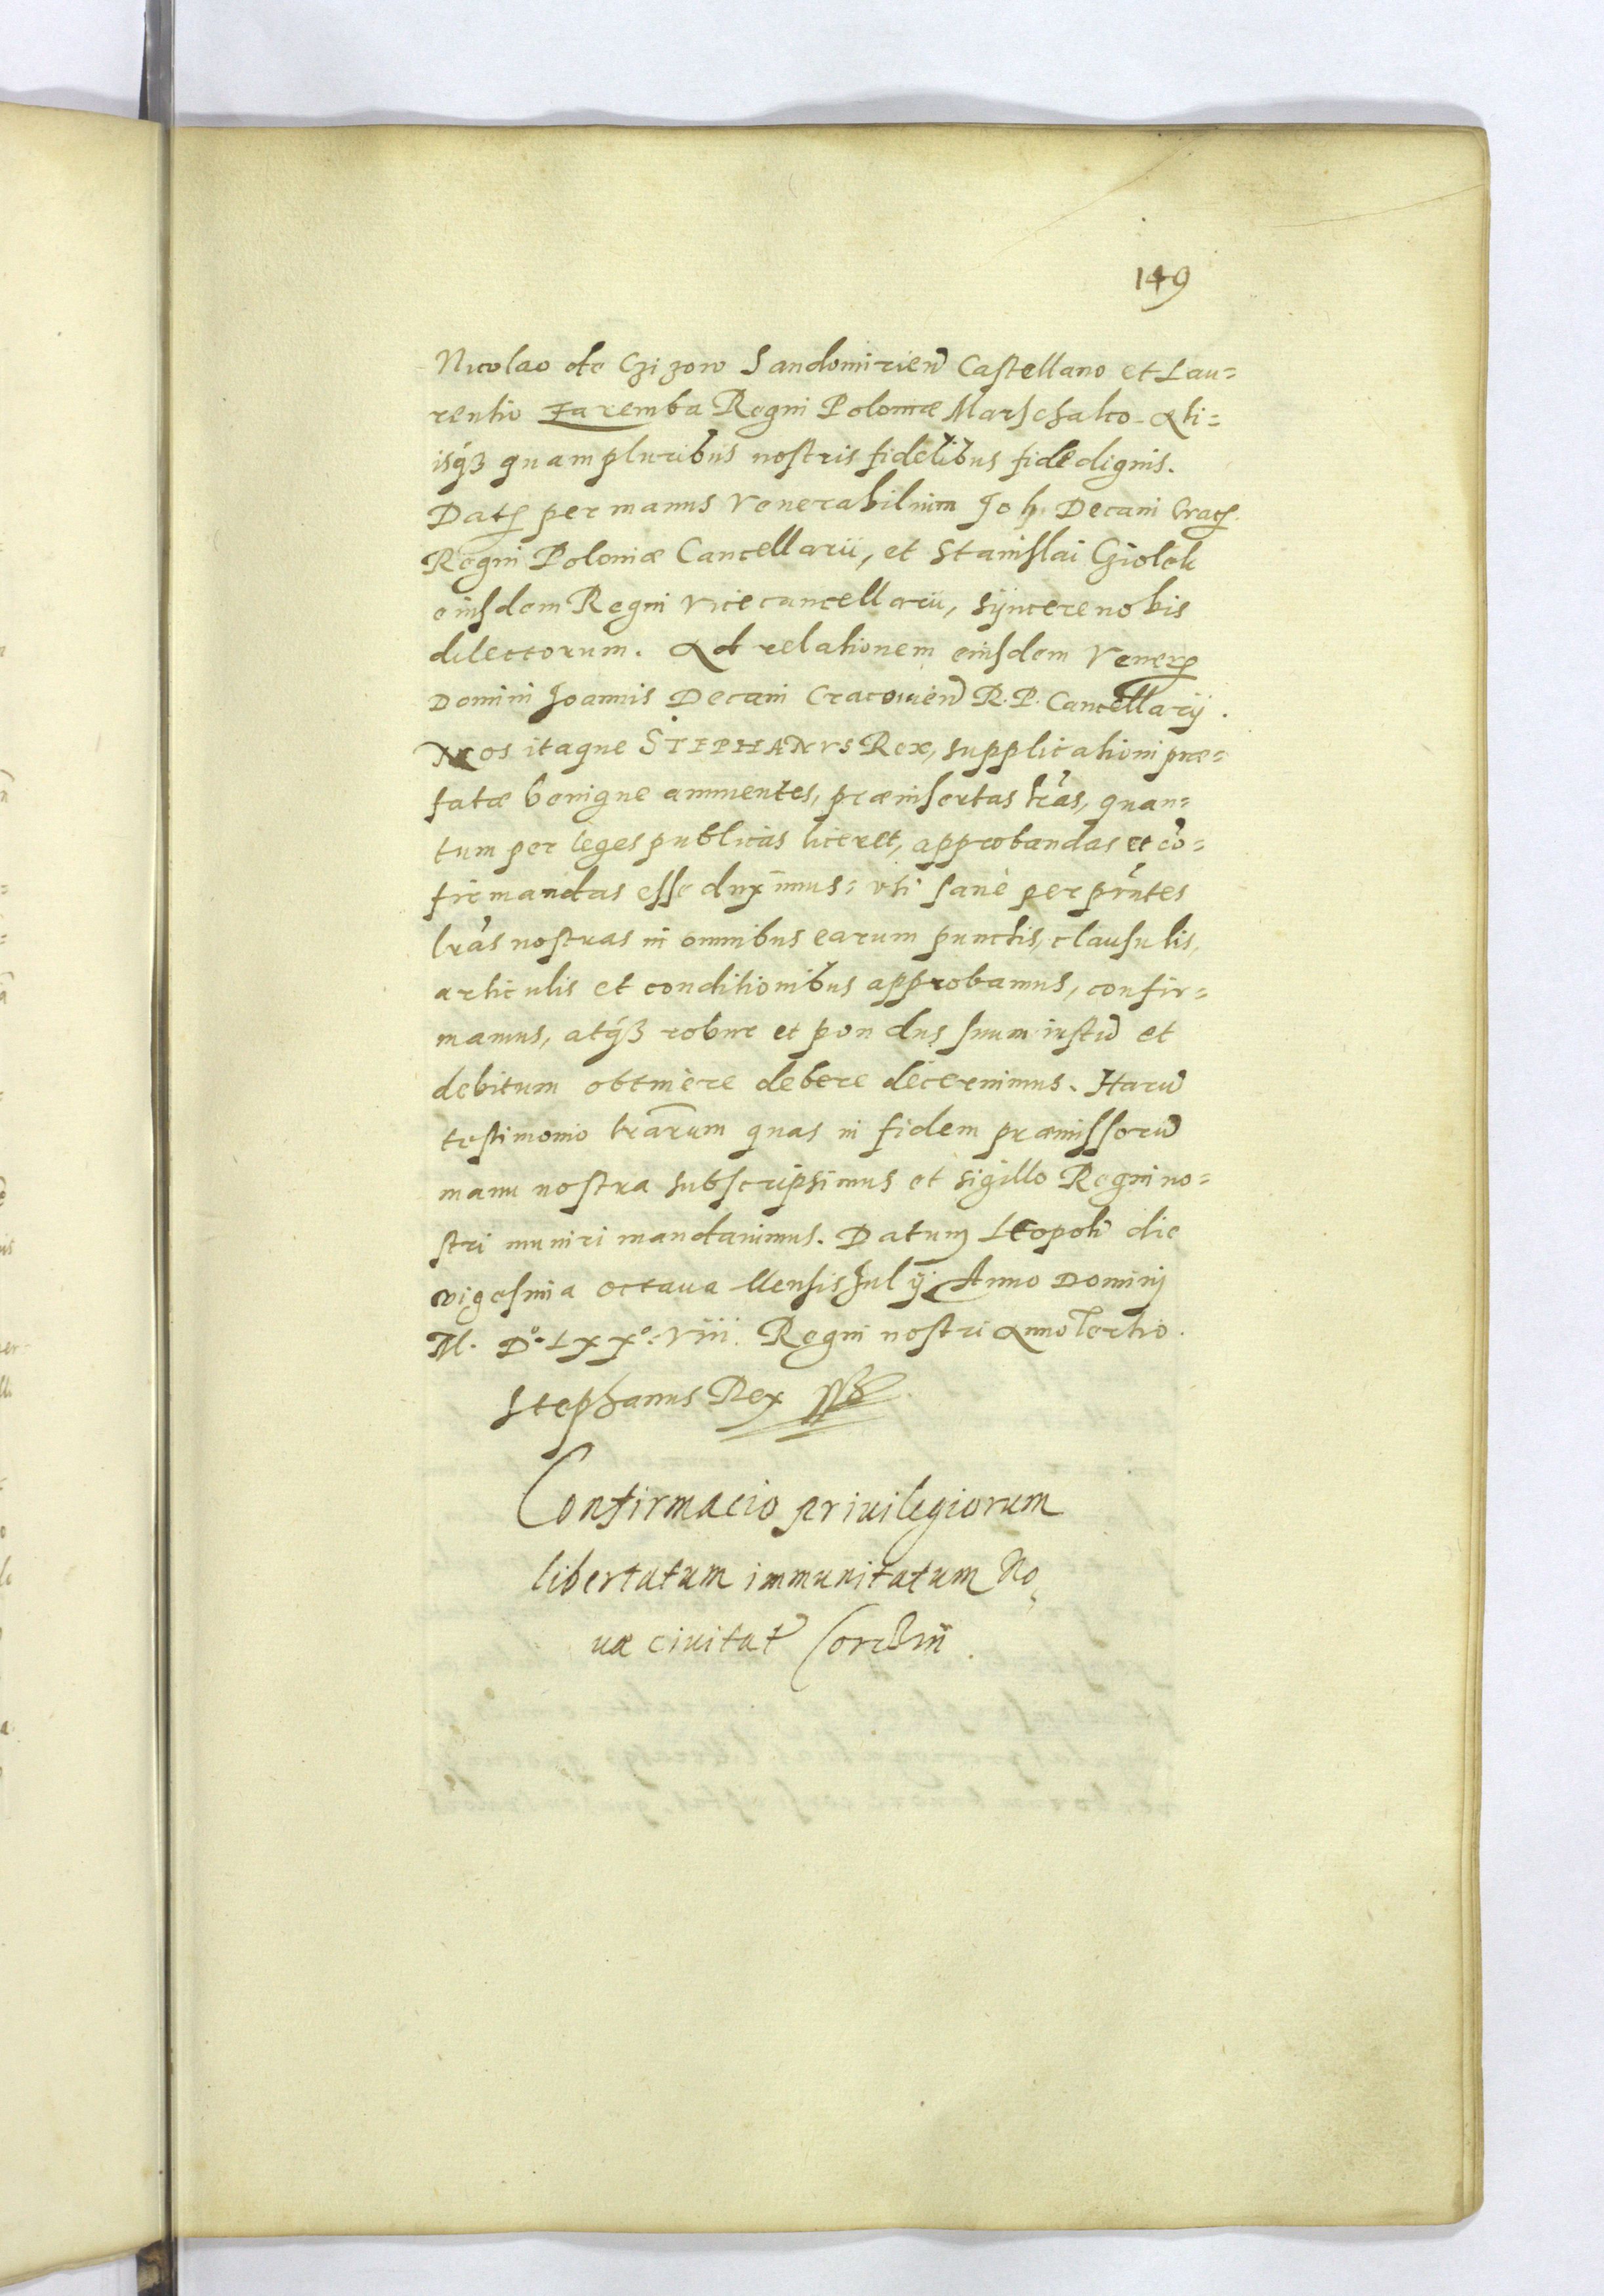 149
Nicolao de Czizow Sandomirien̄ Castellano et Lau=
rentio Zaremba Regni Poloniæ Marschalco Ali=
isq́ꝫ quampluribus nostris fidelibus fide dignis.
Datꝭ per manus Venerabilium Joh. Decani Cracꝭ.
Regni Poloniæ Cancellarii, et Stanislai Cziolek
eiusdem Regni Vicecancellarii, syncere nobis
dilectorum. Ad relationem eiusdem Venerꝭ
Domini Joannis Decani Cracouien̄ R. P. Cancellarij.
Nos itaque STEPHANVS Rex, supplicationi præ=
fatæ benigne annuentes, præinsertas lr̃as, quan=
tum per leges publicas liceret, approbandas et cō=
firmandas esse duximus: vti sanè per pr̃ntes
lr̃as nostras in omnibus earum punctis, clausulis,
articulis et conditionibus approbamus, confir=
mamus, atq́ꝫ robur et pondus suum iustū et
debitum obtinere debere decernimus. Harū
testimonio lr̃arum quas in fidem præmissorū
manu nostra subscripsimus et sigillo Regni no=
stri muniri mandauimus. Datum Leopoli die
vigesima octaua Mensis Julij Anno Dominj
M. Dº. LXXº: VIII. Regni nostri Anno Tertio.
Stephanus Rex
Confirmacio priuilegiorum
libertatum immunitatum No
uæ ciuitat̃